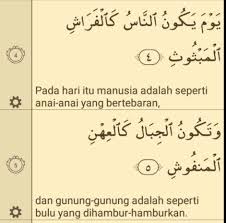 يَوْمَ يَكُونُ ٱلنَّاسُ كَٱلْفَرَاشِ
ٱلْمَبْثُوثِ ٤
4
Pada hari itu manusia adalah seperti
anai-anai yang bertebaran,
وَتَكُونُ ٱلْجِبَالُ كَٱلْعِهْنِ
ٱلْمَنفُوشِ ٥
5
dan gunung-gunung adalah seperti
bulu yang dihambur-hamburkan.